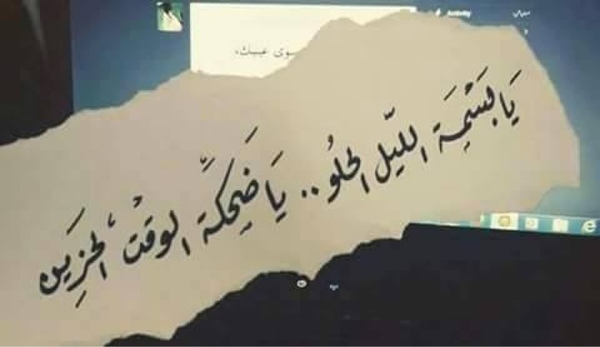 سوى عينيك،
يَا بَسْمِة الليّل الحلُو.. يَا ضَحِكّة الوقتْ الحْزِين